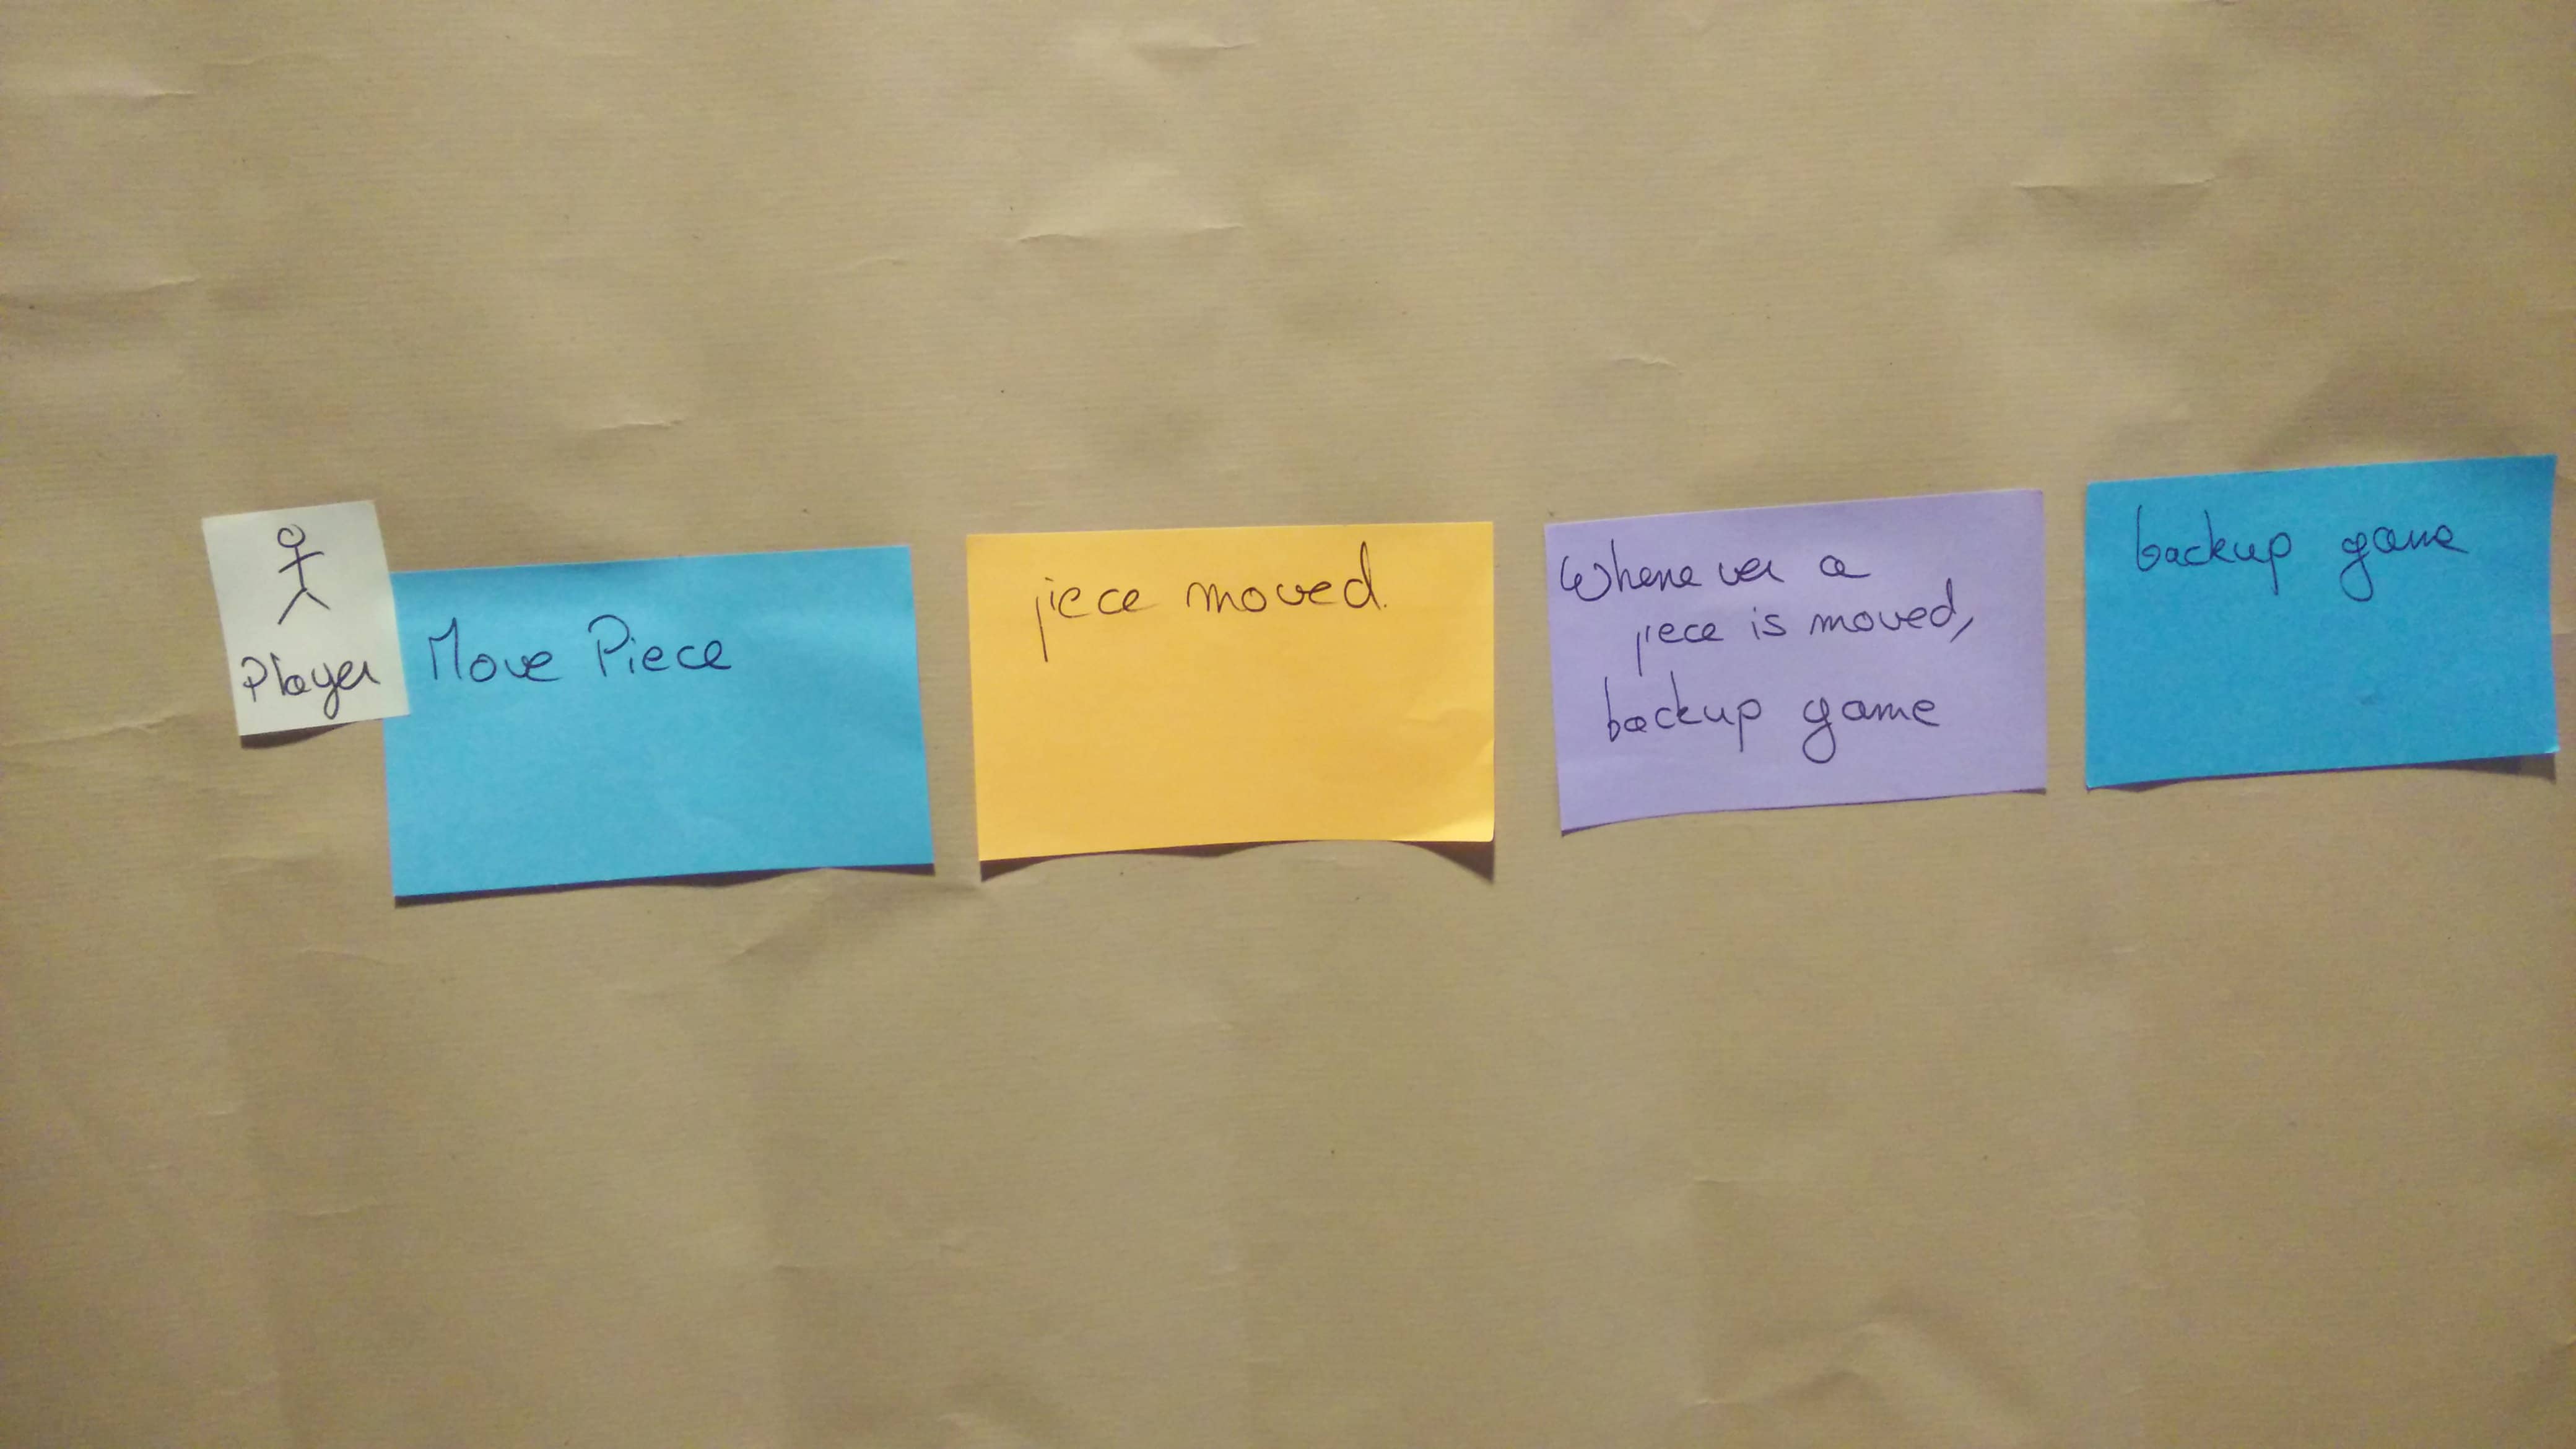 Player
Move Piece
piece moved.
Whenever a
piece is moved,
backup game
backup game